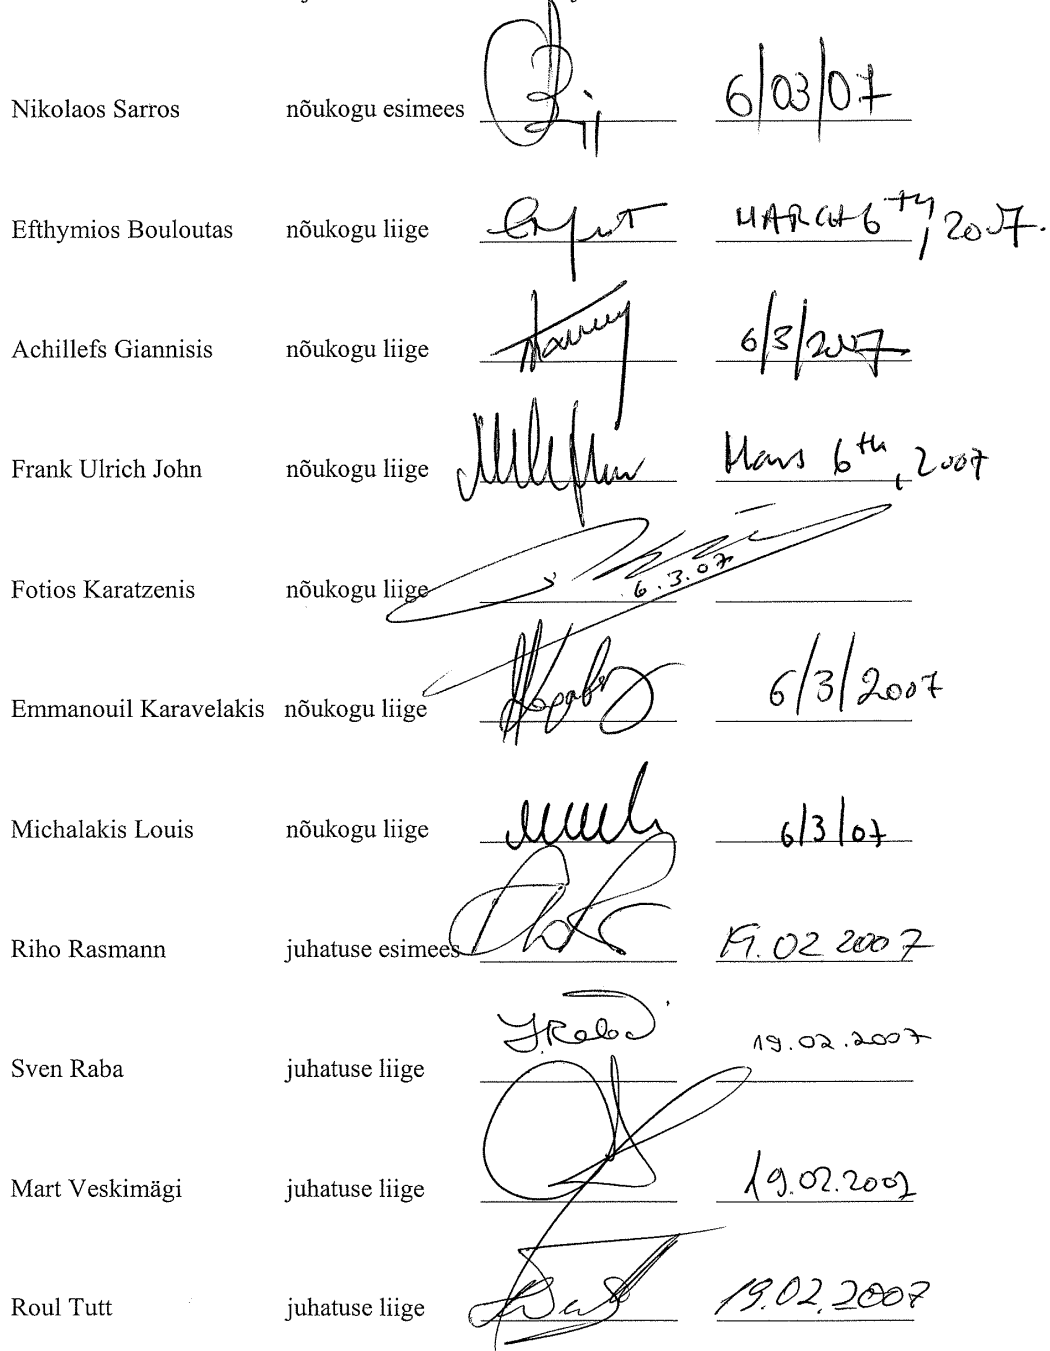 Nikolaos Sarros nõukogu esimees 6/03/07
Efthymios Bouloutas nõukogu liige MARCH 6th, 2007.
Achillefs Giannisis nõukogu liige 6/3/2007
Frank Ulrich John nõukogu liige Mars 6th, 2007
Fotios Karatzenis nõukogu liige 6.3.07
Emmanouil Karavelakis nõukogu liige 6/3/2007
Michalakis Louis nõukogu liige 6/3/07
Riho Rasmann juhatuse esimees 19.02 2007
Sven Raba juhatuse liige 19.02.2007
Mart Veskimägi juhatuse liige 19.02.2007
Roul Tutt juhatuse liige 19.02.2007